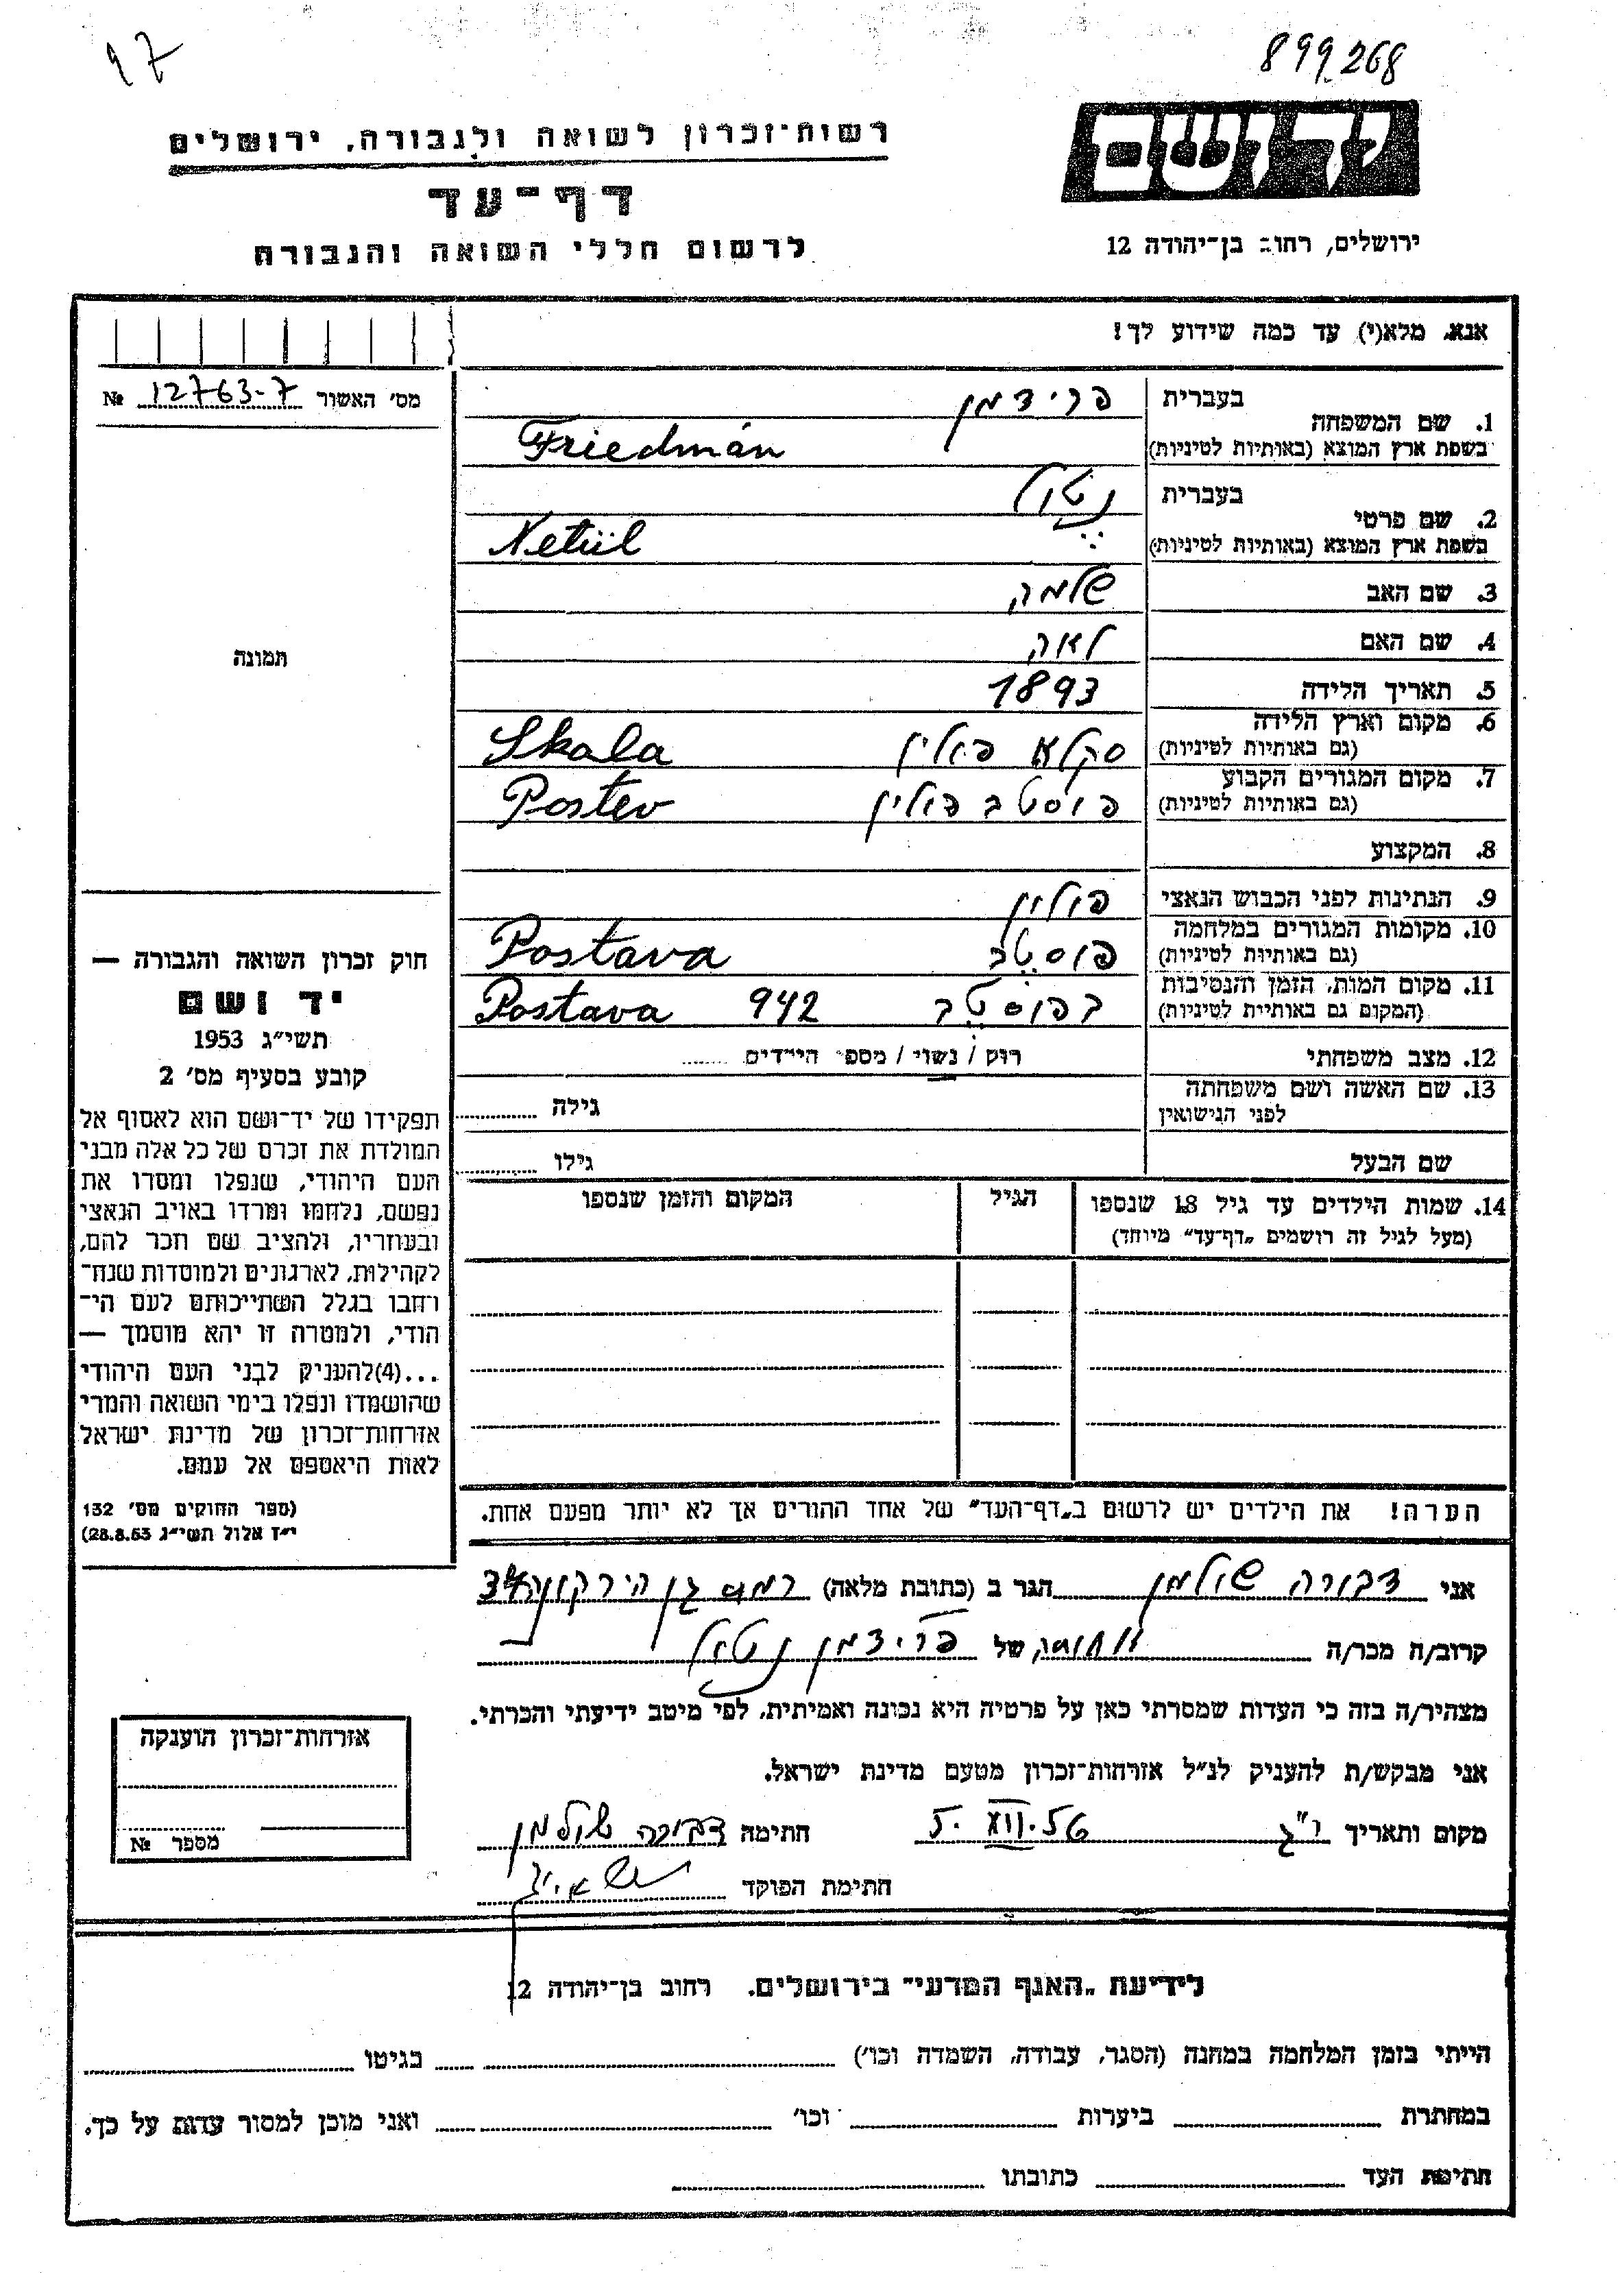 פ ק
899268
רשות־זכרון לשואה ולגבורה, ירושלים
יד ושם
דף־עד
לרשום חללי השואה והגבורה
ירושלים, רחוב בן־יהודה 12
אנא, מלא(י) עד כמה שידוע לך!
מס' האשור 12763-7 №
1. שם המשפחה בעברית פרידמן
בשפת ארץ המוצא (באותיות לטיניות) Friedmán
2. שם פרטי בעברית נטול
בשפת ארץ המוצא (באותיות לטיניות) Netül
3. שם האב שלמה
4. שם האם לאה
5. תאריך הלידה 1893
6. מקום וארץ הלידה (גם באותיות לטיניות) סקלא פולין Skala
7. מקום המגורים הקבוע (גם באותיות לטיניות) פוסטב פולין Postev
8. המקצוע
9. הנתינות לפני הכבוש הנאצי פולין
10. מקומות המגורים במלחמה (גם באותיות לטיניות) פוסטב Postava
11. מקום המות, הזמן והנסיבות (המקום גם באותיות לטיניות) בפוסטב 942 Postava
12. מצב משפחתי רוק / נשוי / מספר הילדים
13. שם האשה ושם משפחתה לפני הנישואין גילה
שם הבעל גילו
14. שמות הילדים עד גיל 18 שנספו (מעל לגיל זה רושמים „דף־עד" מיוחד) הגיל המקום והזמן שנספו
הערה! את הילדים יש לרשום ב„דף־העד" של אחד ההורים אך לא יותר מפעם אחת.
תמונה
חוק זכרון השואה והגבורה —
יד ושם
תשי"ג 1953
קובע בסעיף מס' 2
תפקידו של יד־ושם הוא לאסוף אל
המולדת את זכרם של כל אלה מבני
העם היהודי, שנפלו ומסרו את
נפשם, נלחמו ומרדו באויב הנאצי
ובעוזריו, ולהציב שם וזכר להם,
לקהילות, לארגונים ולמוסדות שנח־
רחבו בגלל השתייכותם לעם הי־
הודי, ולמטרה זו יהא מוסמך —
...(4)להעניק לבני העם היהודי
שהושמדו ונפלו בימי השואה והמרי
אזרחות־זכרון של מדינת ישראל
לאות היאספם אל עמם.
(ספר החוקים מס' 132
י"ז אלול תשי"ג 28.8.53)
אני דבורה שולמן הגר ב (כתובת מלאה) רמת גן הירקון 34
קרוב/ה מכר/ה של פרידמן נטול
מצהיר/ה בזה כי העדות שמסרתי כאן על פרטיה היא נכונה ואמיתית, לפי מיטב ידיעתי והכרתי.
אני מבקש/ת להעניק לנ"ל אזרחות־זכרון מטעם מדינת ישראל.
מקום ותאריך ר"ג 5.XII.56 חתימה דבורה שולמן
חתימת הפוקד
אזרחות־זכרון הוענקה
מספר №
לידיעת „האגף המדעי" בירושלים. רחוב בן־יהודה 12
הייתי בזמן המלחמה במחנה (הסגר, עבודה, השמדה וכו') בגיטו
במחתרת ביערות וכו' ואני מוכן למסור עדות על כך.
חתימת העד כתובתו